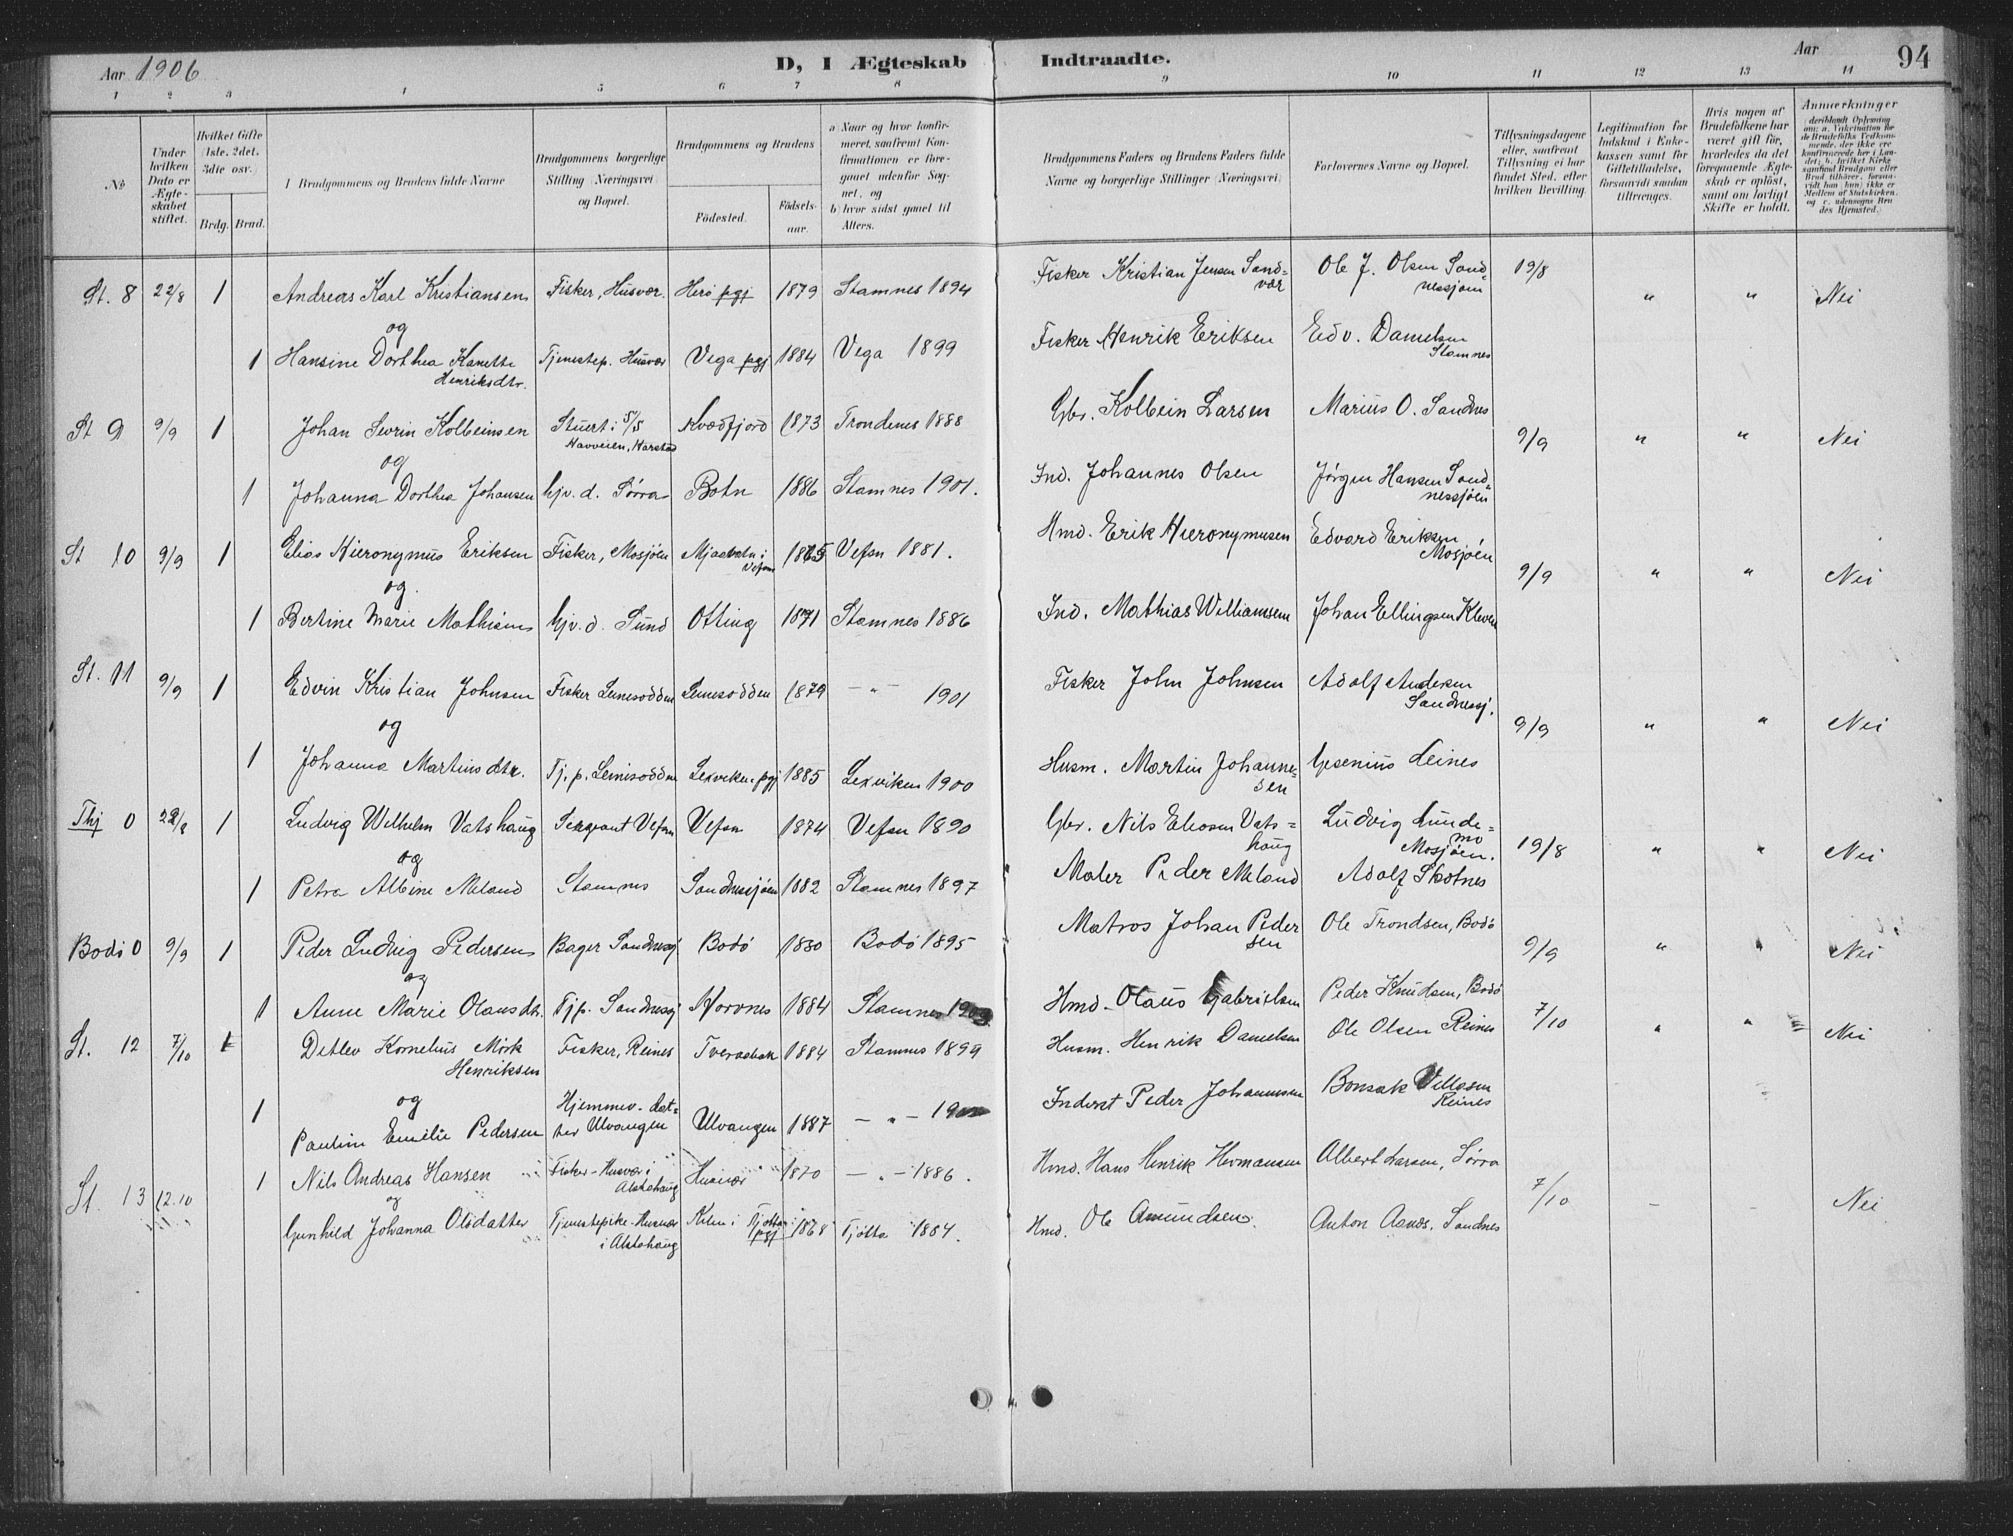 Aar 1906 D, I Ægteskab Indtraadte. Aar 94
1 2 3 4 5 6 7 8 9 10 11 12 13 14
No
Under hvilken Dato er Ægteskabet stiftet.
Hvilket Gifte (1ste, 2det, 3die osv.)
Brdg. Brud.
Brudgommens og Brudens fulde Navne
Brudgommens borgerlige Stilling (Næringsvei) og Bopæl.
Brudgommens og Brudens
Fødested. Fødselsaar.
a Naar og hvor konfirmeret, saafremt Konfirmationen er foregaaet udenfor Sognet, og
b) hvor sidst gaaet til Alters.
Brudgommens Faders og Brudens Faders fulde Navne og borgerlige Stillinger (Næringsvei)
Forlovernes Navne og Bopæl.
Tillysningsdagene eller, saafremt Tillysning ei har fundet Sted, efter hvilken Bevilling.
Legitimation for Indskud i Enkekassen samt for Giftetilladelse, forsaavidt saadan tiltrænges.
Hvis nogen af Brudefolkene har været gift før, hvorledes da det foregaaende Ægteskab er opløst, samt om lovligt Skifte er holdt.
Anmærkninger
St. 8 22/8 1 Andreas Karl Kristiansen Fisker, Husvær Herø pgj 1879 Stamnes 1894 Fisker Kristian Jensen Sandvær Ole J. Olsen Sandnessjøen 19/8 " " Nei
og
1 Hansine Dorthea Kanette Henriksdtr. Tjenestep. Husvær Vega pgj 1884 Vega 1899 Fisker Henrik Eriksen Edv. Danielsen Stamnes
St 9 9/9 1 Johan Sevrin Kolbeinsen Stuert i S/S Havveien, Harstad Kvædfjord 1873 Trondenes 1888 Gbr. Kolbein Larsen Marius O. Sandnes 9/9 " " Nei
og
1 Johanna Dorthea Johansen hjv. d. Sørra Botn 1886 Stamnes 1901. Ind. Johannes Olsen Jørgen Hansen Sandnessjøen
St 10 9/9 1 Elias Hieronymus Eriksen Fisker, Mosjøen i Vefsn 1865 Vefsn 1881. Hmd. Erik Hieronymusen Edvard Eriksen Mosjøen 9/9 " " Nei
og
1 Bertine Marie Mathisen hjv. d. Sund Otting 1871 Stamnes 1886 Ind. Mathias Williamsen Johan Ellingsen Kleven
St. 11 9/9 1 Edvin Kristian Johnsen Fisker Leinesodden Leinesodden 1879 - " - 1901 Fisker John Johnsen Adolf Andersen Sandnessj. 9/9 " " Nei
og
1 Johanna Martinsdtr. Tj. p. Leinesodden Lexviken pgj 1885 Lexviken 1900 Husm. Martin Johannesen Gesenius Leines
Thj 0 22/8 1 Ludvig Wilhelm Vatshaug Sergeant Vefsn Vefsn 1874 Vefsn 1890 Gbr. Nils Eliasen Vatshaug Ludvig Lundemo Mosjøen. 19/8 " " Nei
og
1 Petra Albine Meland Stamnes Sandnessjøen 1882 Stamnes 1897 Maler Peder Meland Adolf Skotnes
Bodø 0 9/9 1 Peder Ludvig Pedersen Bager Sandnessj. Bodø 1880 Bodø 1895 Matros Johan Pedersen Ole Trondsen, Bodø 9/9 " " Nei
og
1 Anne Marie Olausdtr. Tjp. Sandnessj Horvnes 1884 Stamnes Hmd. Olaus Gabrielsen Peder Knudsen, Bodø
St. 12 7/10 1 Ditlev Kornelius Mørk Henriksen Fisker, Reines Tveraabak 1884 Stamnes 1899 Husm. Henrik Danielsen Ole Olsen Reines 7/10 " " Nei
og
1 Pauline Emilie Pedersen Hjemmev. datter Ulvangen Ulvangen 1887 - " - Inderst Peder Johannesen Bonsak Villasen Reines
St. 13 12.10 1 Nils Andreas Hansen Fisker - Husvær i Alstahaug Husvær 1870 - " - 1886. Hmd. Hans Henrik Hermansen Albert Larsen, Sørra 7/10 - - Nei
og
Gunhild Johanna Olsdatter Tjenestepike - Husvær i Alstahaug i Tjøtta pgj 1868 Tjøtta 1884. Hmd. Ole Amundsen. Anton Aanes, Sandnes